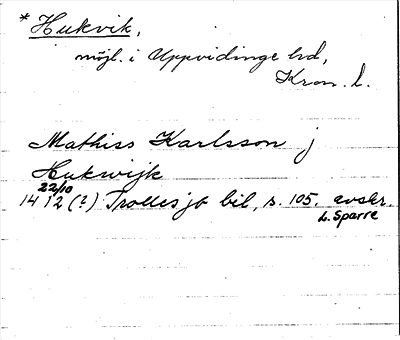 * Hukvik,
möjl. i Uppvidinge hd,
Kron. L.
Mathiss Karlsson j
Hukwijk
22/10
1412 (?) Trolles jb bil, s. 105. avskr.
L. Sparre